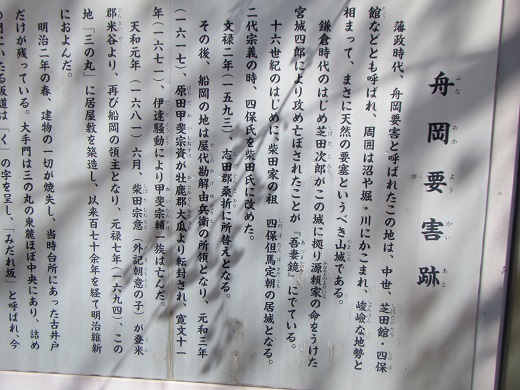 舟岡要害跡
ふな おか よう がい あと
藩政時代、舟岡要害と呼ばれたこの地は、中世、芝田館・四保
館などとも呼ばれ、周囲は沼や堀・川にかこまれ、峻嶮な地勢と
相まって、まさに天然の要塞というべき山城である。
鎌倉時代のはじめ芝田次郎がこの城に拠り源頼家の命をうけた
宮城四郎により攻め亡ぼされたことが『吾妻鏡』にでている。
十六世紀のはじめに、柴田家の祖 四保但馬定朝の居城となる。
二代宗義の時、四保氏を柴田氏に改めた。
文禄二年(一五九三)、志田郡桑折に所替えとなる。
その後、船岡の地は屋代勘解由兵衛の所領となり、元和三年
(一六一七)、原田甲斐宗資が牡鹿郡大瓜より転封され、寛文十一
年(一六七一)、伊達騒動により甲斐宗輔一族は亡んだ。
天和元年(一六八一)六月、柴田宗意(外記朝意の子)が登米
郡米谷より、再び船岡の領主となり、元禄七年(一六九四)、この
地「三の丸」に居屋敷を築造し、以来百七十余年を経て明治維新
におよんだ。
明治二年の春、建物の一切が焼失し、当時台所にあった古井戸
だけが残っている。大手門は三の丸の東麓ほぼ中央にあり、詰め
の門にいたる坂道は「く」の字を呈し、「みだれ坂」と呼ばれ、今